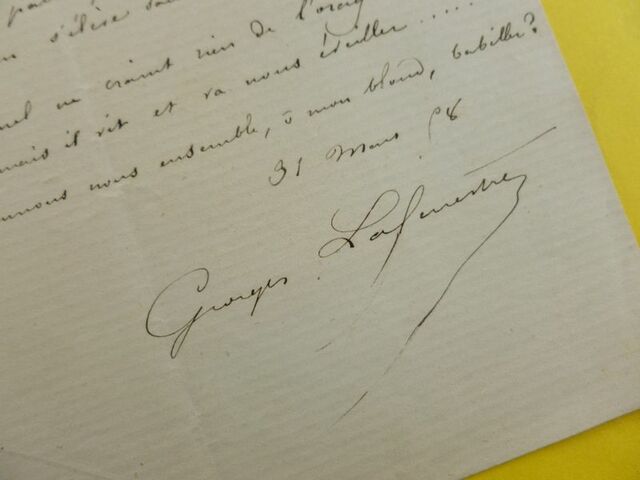 n s'élève
ne craint rien de l'orag
mais il rit et va nous éveiller .....
nous ensemble, ô mon blond, babiller?
31 Mars 58
Georges Lafenestre